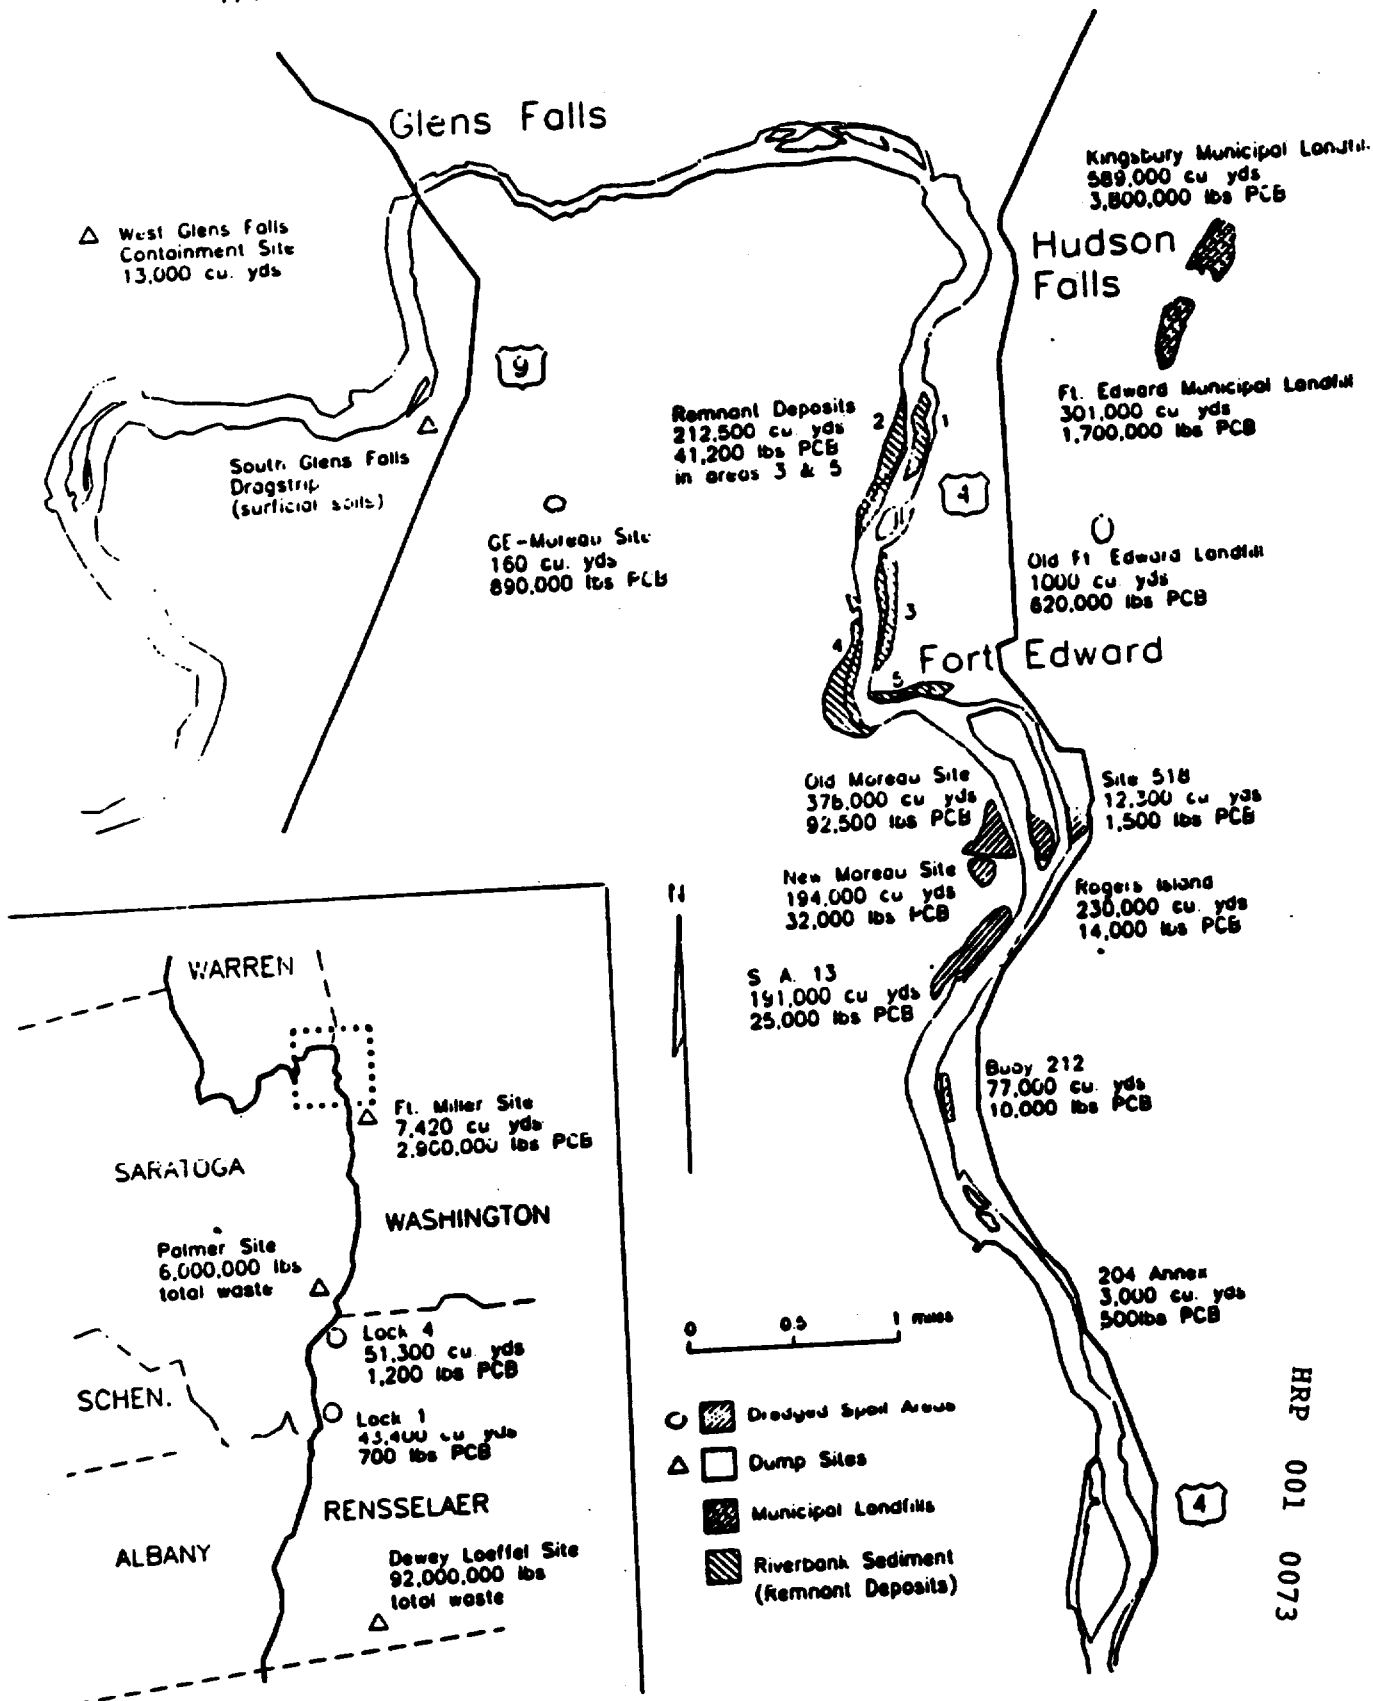 Glens Falls
Kingsbury Municipal Landfill
589,000 cu yds
3,800,000 lbs PCB
West Glens Falls
Containment Site
13,000 cu. yds
Hudson
Falls
9
Ft. Edward Municipal Landfill
301,000 cu yds
1,700,000 lbs PCB
Remnant Deposits
212,500 cu yds
41,200 lbs PCB
in areas 3 & 5
2
1
South Glens Falls
Dragstrip
(surficial soils)
4
GE-Moreau Site
160 cu. yds
890,000 lbs PCB
Old Ft Edward Landfill
1000 cu yds
620,000 lbs PCB
3
4
5
Fort Edward
Old Moreau Site
376,000 cu yds
92,500 lbs PCB
Site 518
12,300 cu yds
1,500 lbs PCB
New Moreau Site
194,000 cu yds
32,000 lbs PCB
Rogers Island
230,000 cu. yds
14,000 lbs PCB
N
S A. 13
191,000 cu yds
25,000 lbs PCB
Buoy 212
77,000 cu. yds
10,000 lbs PCB
204 Annex
3,000 cu. yds
500lbs PCB
WARREN
Ft. Miller Site
7,420 cu yds
2,900,000 lbs PCB
SARATOGA
WASHINGTON
Palmer Site
6,000,000 lbs
total waste
Lock 4
51,300 cu yds
1,200 lbs PCB
SCHEN.
Lock 1
43,400 cu yds
700 lbs PCB
RENSSELAER
ALBANY
Dewey Loeffel Site
92,000,000 lbs
total waste
0 0.5 1 miles
Dredged Spoil Areas
Dump Sites
Municipal Landfills
Riverbank Sediment
(Remnant Deposits)
4
HRP 001 0073